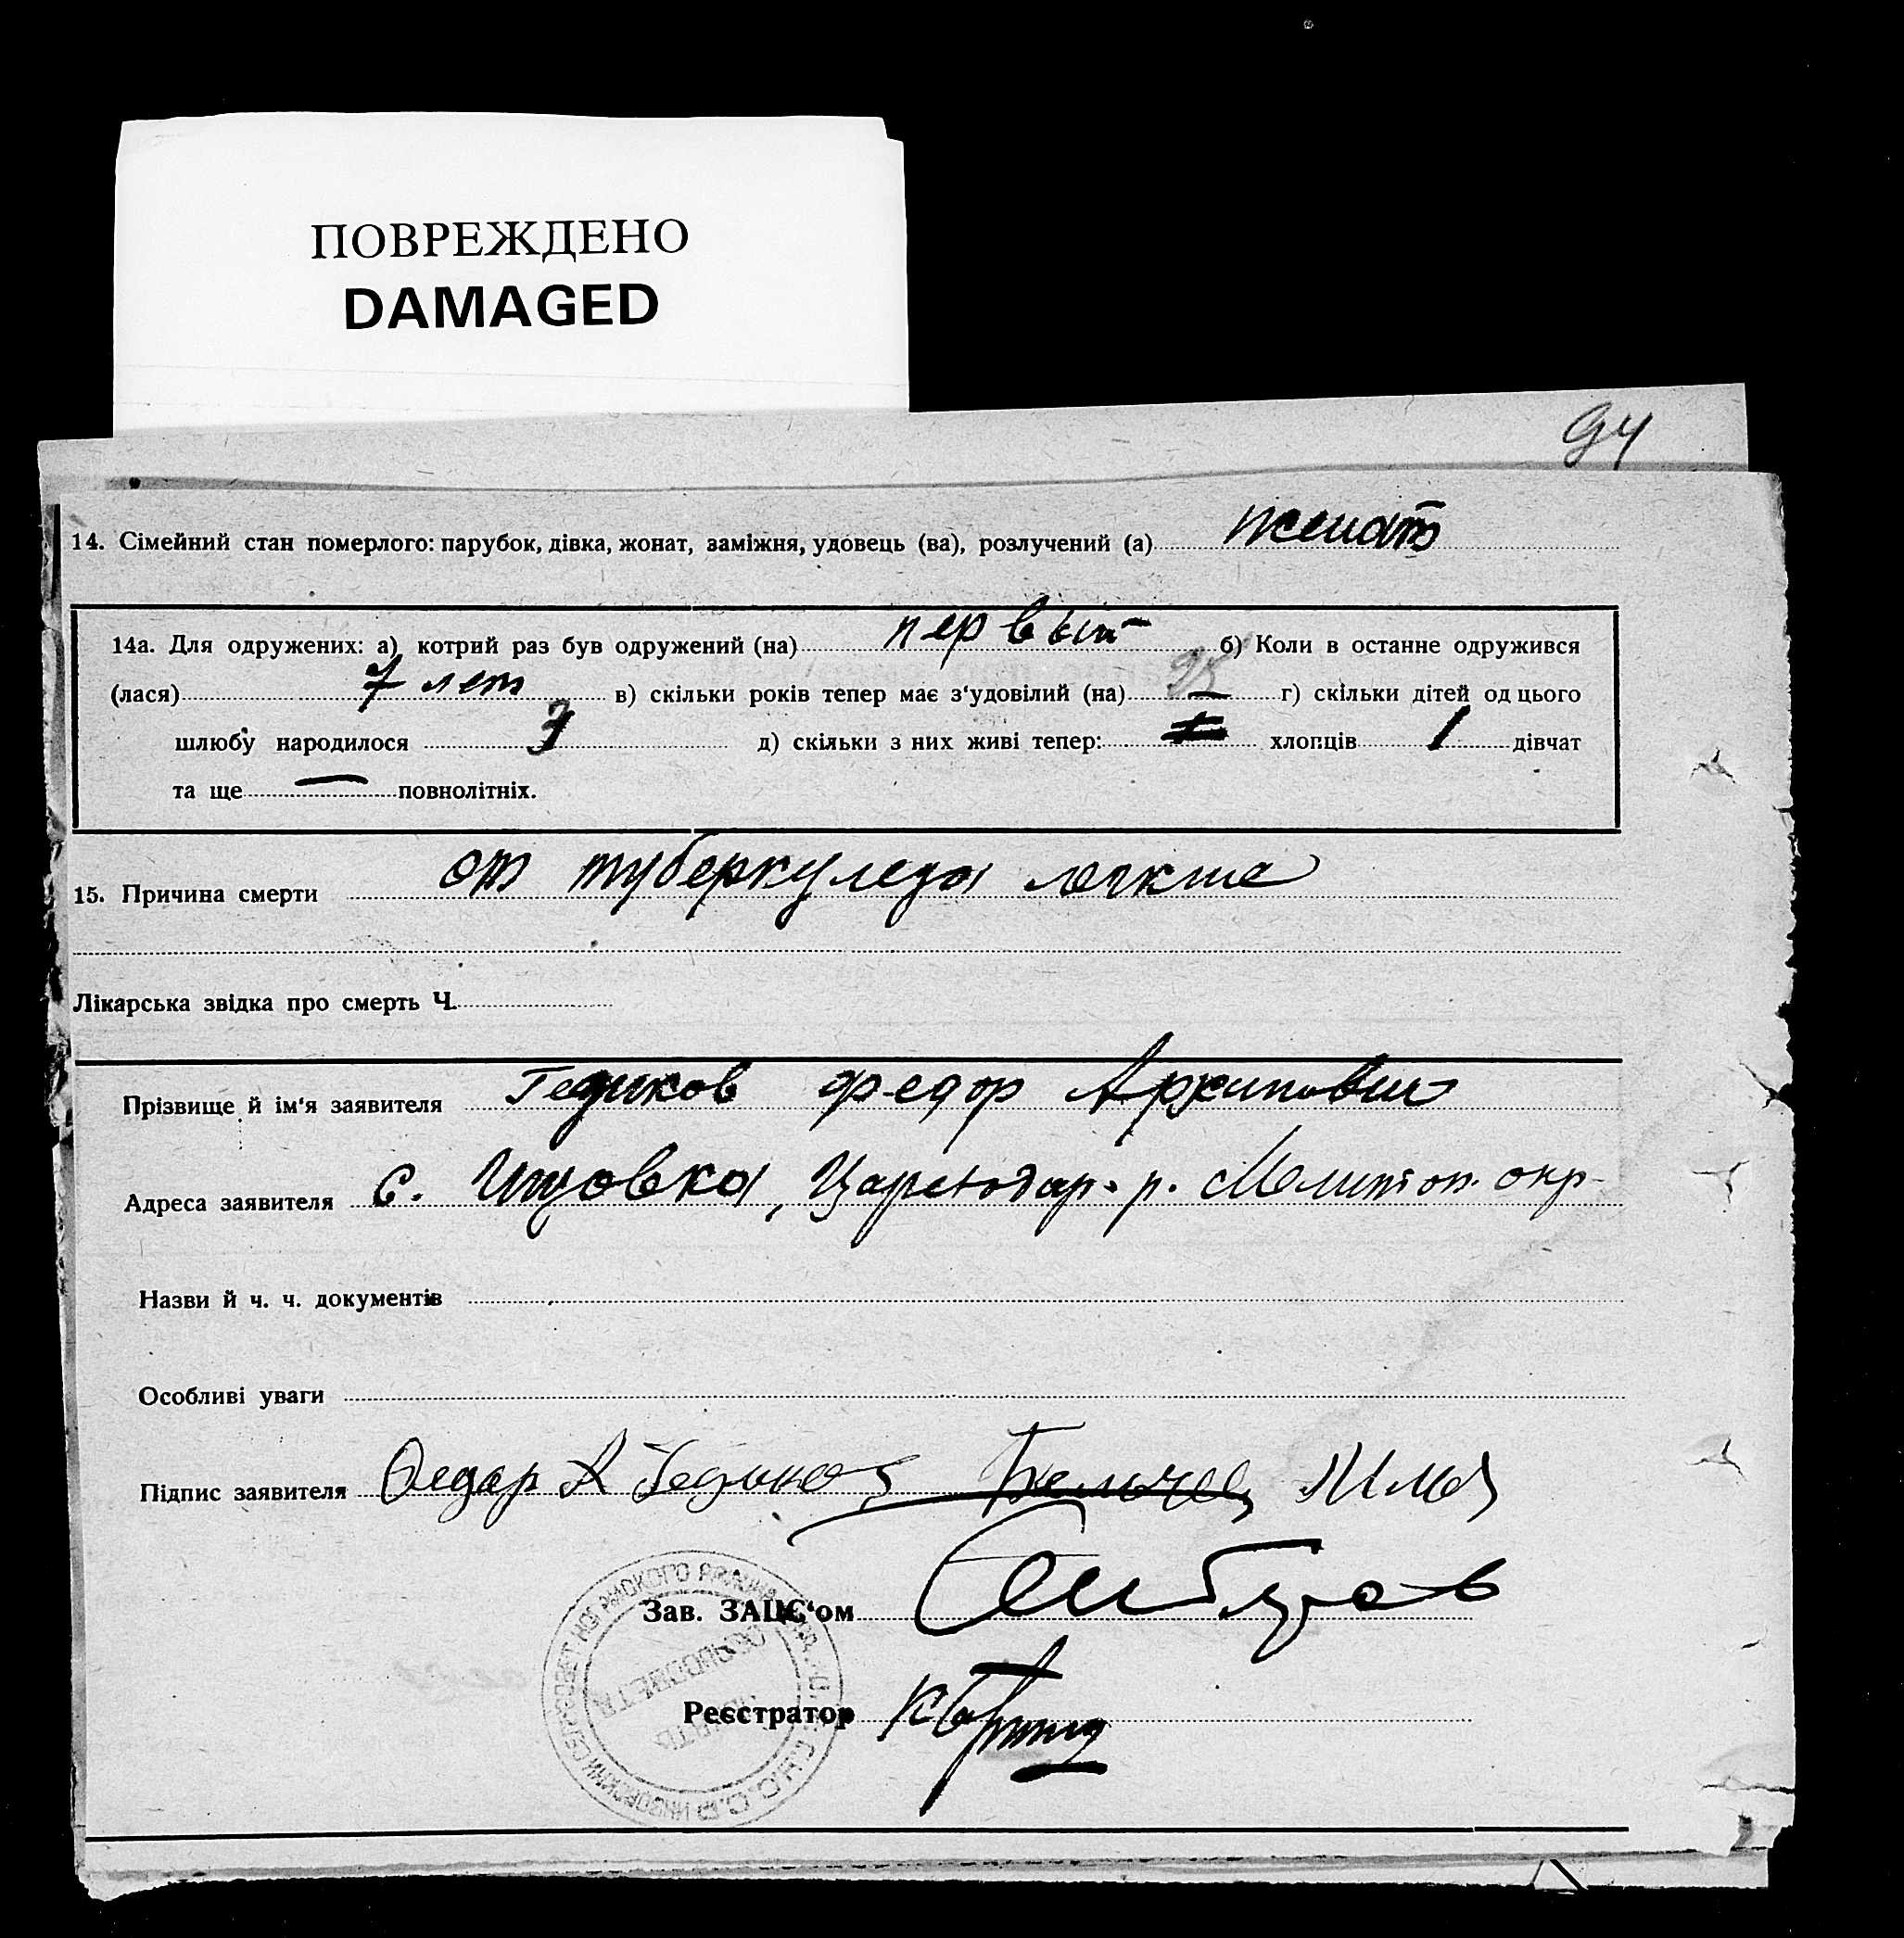 ПОВРЕЖДЕНО
DAMAGED
94
14. Сімейний стан померлого: парубок, дівка, жонат, заміжня, удовець (ва), розлучений (а) женатъ
14а. Для одружених: а) котрий раз був одружений (на) первый б) Коли в останнє одружився
(лася) 7 лет в) скільки років тепер має з‘удовілий (на) г) скільки дітей од цього
шлюбу народилося д) скільки з них живі тепер: хлопців 1 дівчат
та ще — повнолітніх.
15. Причина смерти от туберкулеза легких
Лікарська звідка про смерть Ч.
Прізвище й ім‘я заявителя Гедиков Федор Архипович
Адреса заявителя с. Инзовка, Цареводар. р. Мелитоп. окр-
Назви й ч. ч. документів
Особливі уваги
Підпис заявителя
Зав. ЗАЦС‘ом
Реєстратор